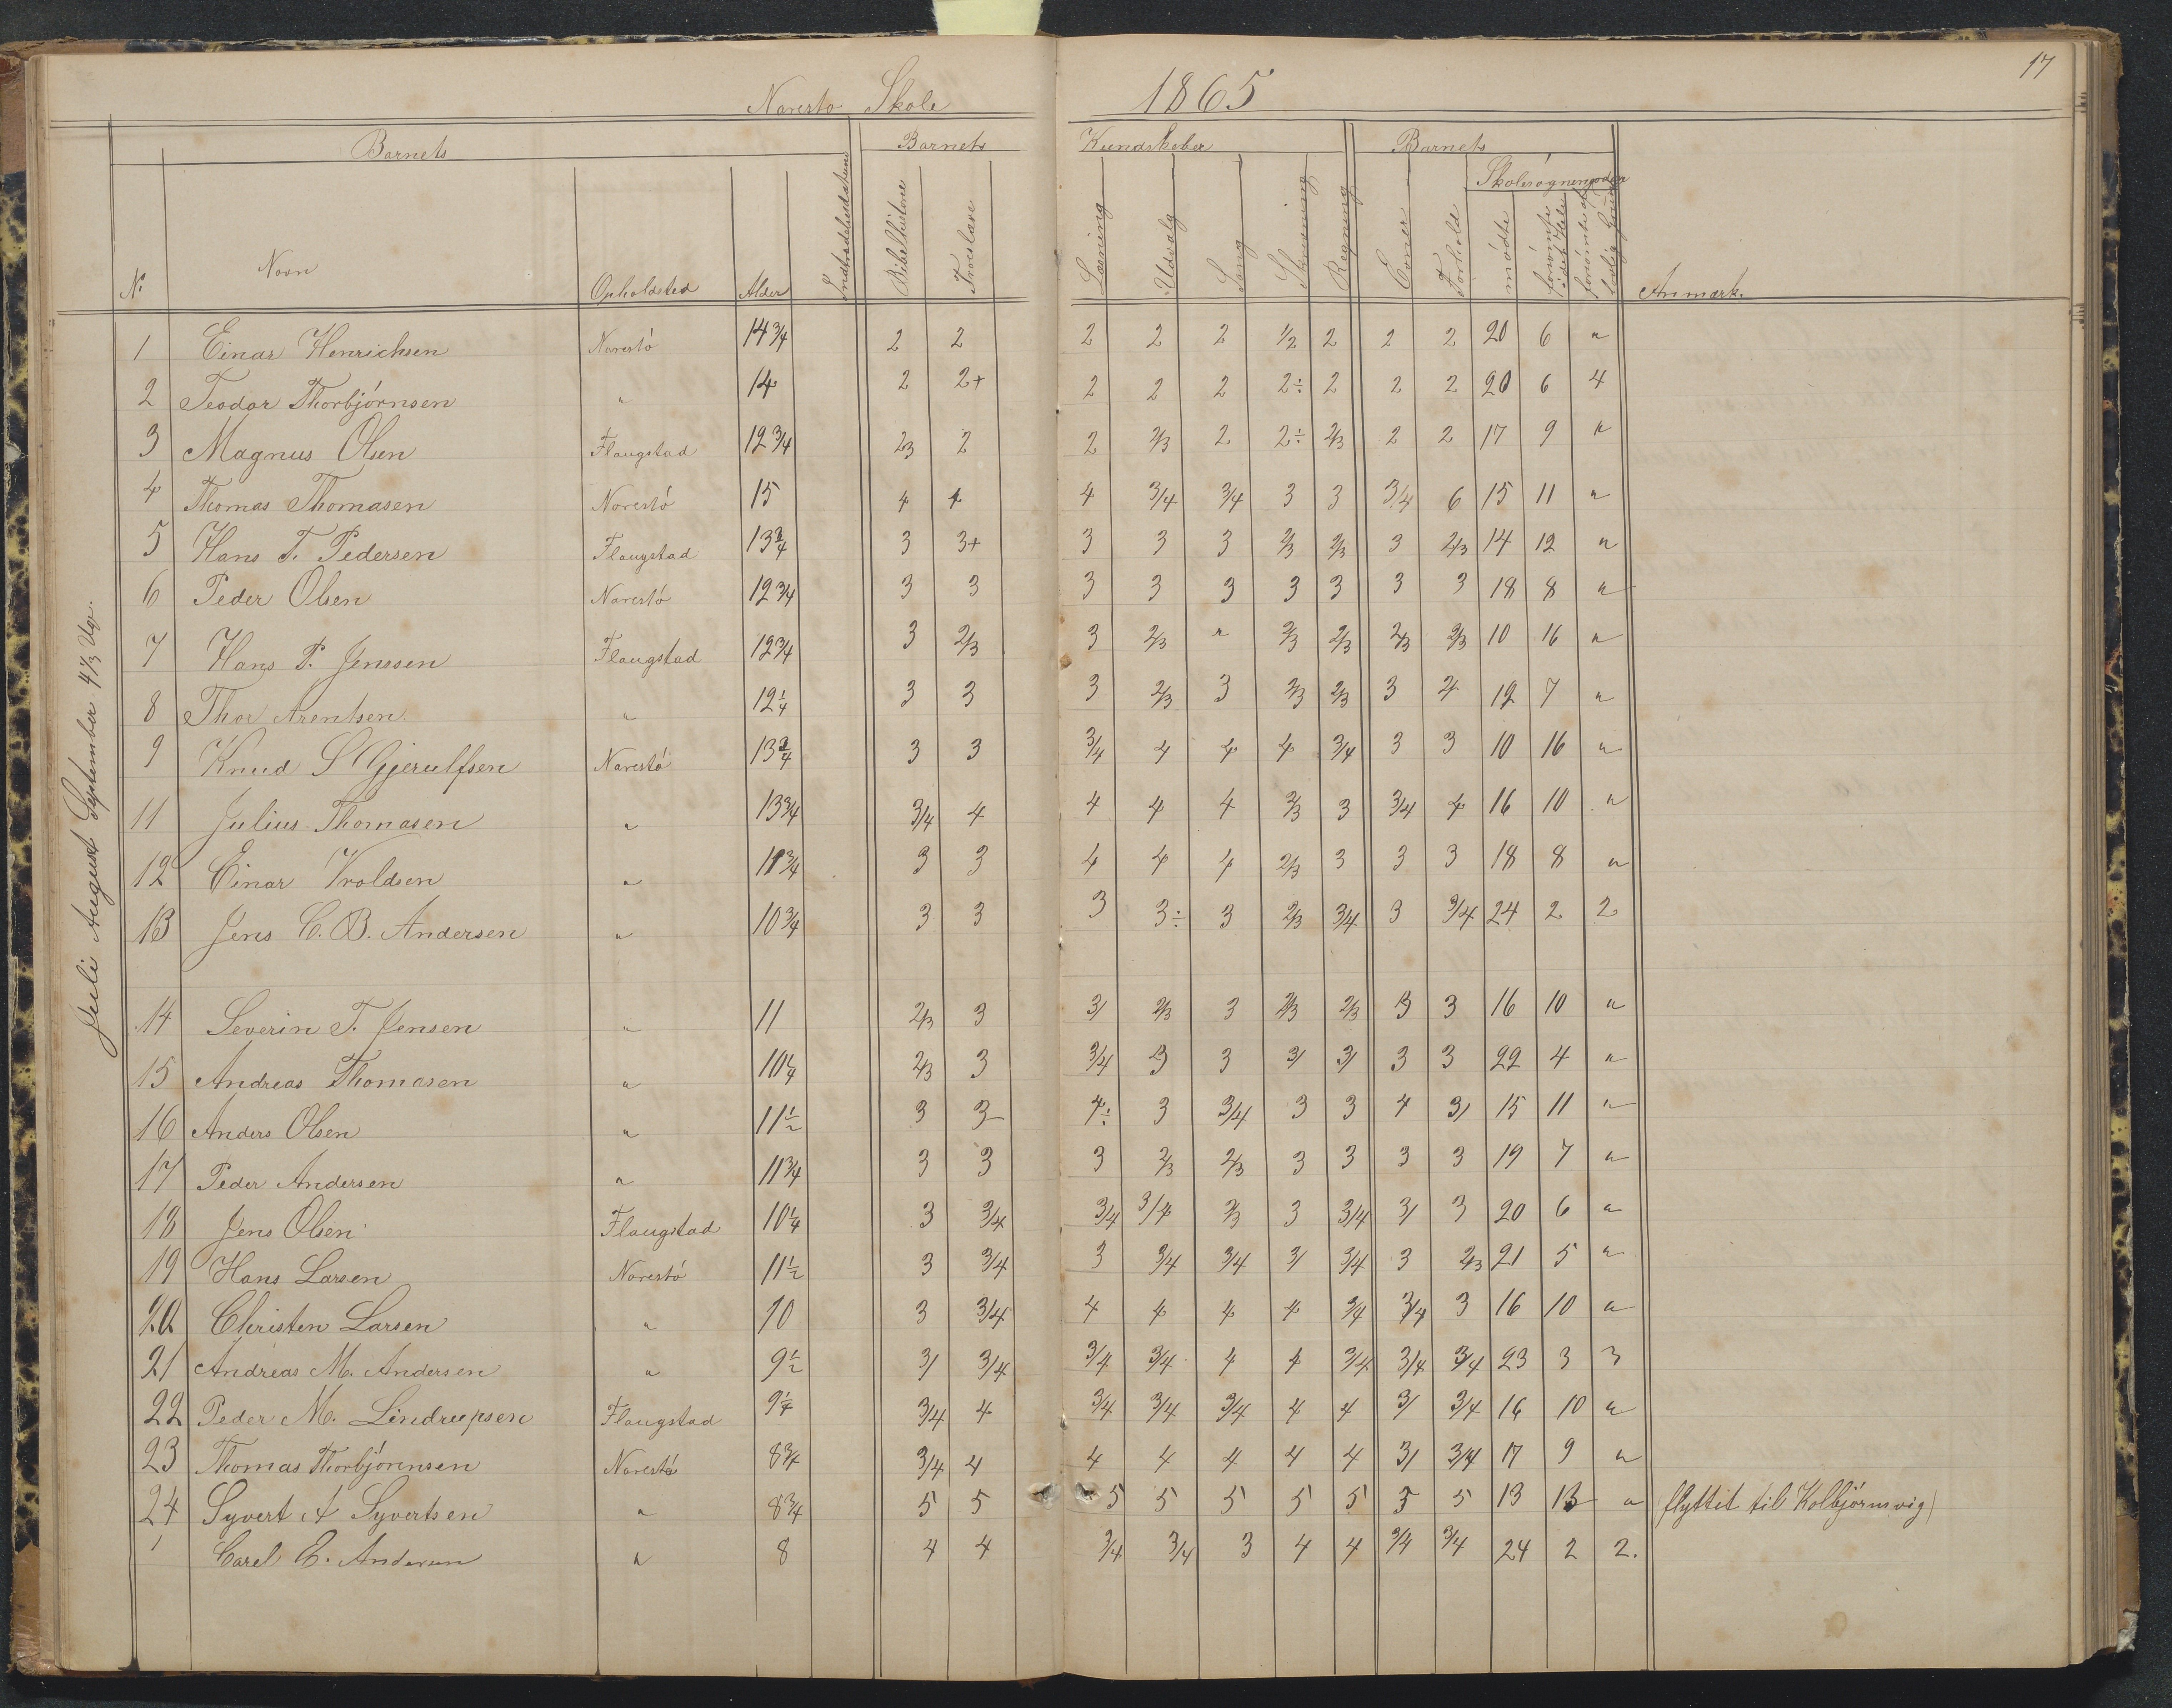 17
Narestø Skole 1865
Barnets Barnets Kundskeber Barnets
Skolesøgningsdage
No Navn Opholdsted Alder Indtrædelsesdatum Bibelhistorie Troeslære Læsning Udvalg Sang Skrivning Regning Evner Forhold mødte forsømte i det Hele forsømte af lovlig Grund Anmærk.
Juli August September 4 1/3 Ug.
1 Einar Henrichsen Narestö 14 3/4 2 2 2 2 2 1/2 2 2 2 20 6 "
2 Teodor Thorbjörnsen " 14 2 2+ 2 2 2 2÷ 2 2 2 20 6 4
3 Magnus Olsen Flaugstad 12 3/4 2/3 2 2 2/3 2 2÷ 2/3 2 2 17 9 "
4 Thomas Thomasen Narestö 15 4 4 4 3/4 3/4 3 3 3/4 6 15 11 "
5 Hans T. Pedersen Flaugstad 13 3/4 3 3+ 3 3 3 2/3 2/3 3 2/3 14 12 "
6 Peder Olsen Narestö 12 3/4 3 3 3 3 3 3 3 3 3 18 8 "
7 Hans P. Jenssen Flaugstad 12 3/4 3 2/3 3 2/3 " 2/3 2/3 2/3 2/3 10 16 "
8 Thor Arentsen " 12 1/4 3 3 3 2/3 3 2/3 2/3 3 4 19 7 "
9 Knud S Gjerulfsen Narestö 13 3/4 3 3 3/4 4 4 4 3/4 3 3 10 16 "
11 Julius Thomasen " 13 3/4 3/4 4 4 4 4 2/3 3 3/4 4 16 10 "
12 Einar Vroldsen " 11 3/4 3 3 4 4 4 2/3 3 3 3 18 8 "
13 Jens C. B. Andersen " 10 3/4 3 3 3 3÷ 3 2/3 3/4 3 3/4 24 2 2
14 Severin T. Jensen " 11 2/3 3 3/ 2/3 3 2/3 2/3 3 3 16 10 "
15 Andreas Thomasen " 10 1/4 2/3 3 3/4 3 3 3/ 3/ 3 3 22 4 "
16 Anders Olsen " 11 1/2 3 3 4÷ 3 3/4 3 3 4 3/ 15 11 "
17 Peder Andersen " 11 3/4 3 3 3 2/3 2/3 3 3 3 3 19 7 "
18 Jens Olsen Flaugstad 10 1/4 3 3/4 3/4 3/4 2/3 3 3/4 3/ 3 20 6 "
19 Hans Larsen Narestö 11 1/2 3 3/4 3 3/4 3/4 3/ 3/4 3 2/3 21 5 "
20 Christen Larsen " 10 3 3/4 4 4 4 4 3/4 3/4 3 16 10 "
21 Andreas M. Andersen " 9 1/2 3/ 3/4 3/4 3/4 4 4 3/4 3/4 3/4 23 3 3
22 Peder M. Lindrupsen Flaugstad 9 1/4 3/4 4 3/4 3/4 3/4 4 4 3/ 3/4 16 10 "
23 Thomas Thorbjörensen Narestö 8 3/4 3/4 4 4 4 4 4 4 3/ 3/4 17 9 "
24 Syvert A Syvertsen " 8 3/4 5 5 5 5 5 5 5 5 5 13 13 " (flyttet til Kolbjørnsvig)
Carel E. Andersen " 8 4 4 3/4 3/4 3 4 4 3/4 3/4 24 2 2.